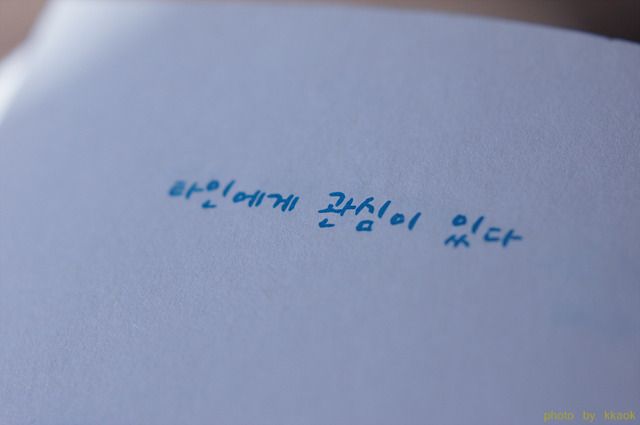 타인에게 관심이 있다
photo by. kkaok